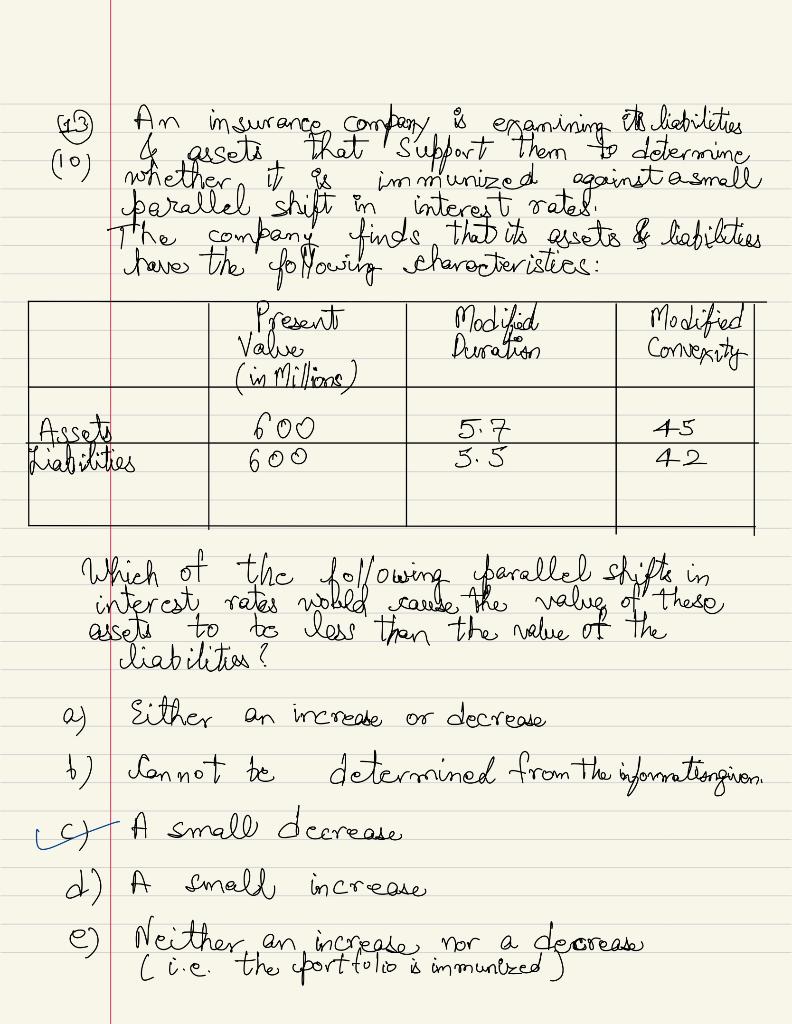 (13) An insurance company is examining its liabilities
(10) & assets that support them to determine
whether it is immunized against a small
parallel shift in interest rates.
The company finds that its assets & liabilities
have the following characteristics:
Present Modified Modified
Value Duration Convexity
(in Millions)
Assets 600 5.7 45
Liabilities 600 5.5 42
Which of the following parallel shifts in
interest rates would cause the value of these
assets to be less than the value of the
liabilities?
a) Either an increase or decrease
b) Cannot be determined from the information given.
c) A small decrease
d) A small increase
e) Neither an increase nor a decrease
(i.e. the portfolio is immunized)